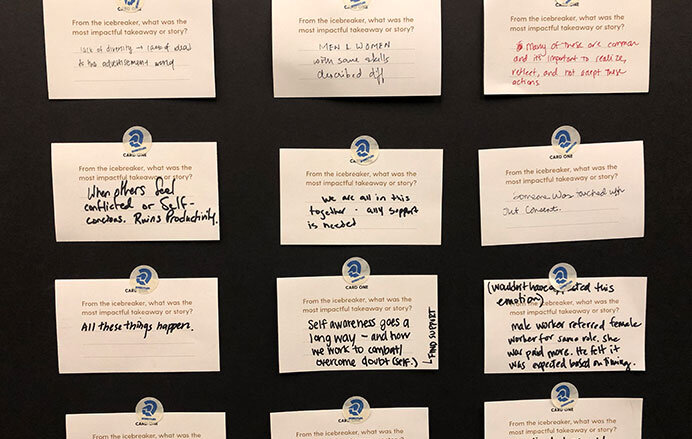 From the icebreaker, what was the
most impactful takeaway or story?
lack of diversity → lack of ideas
to the advertisement world
From the icebreaker, what was the
most impactful takeaway or story?
MEN & WOMEN
with same skills
described diff
From the icebreaker, what was the
most impactful takeaway or story?
Many of these are common
and its important to realize,
reflect, and not accept these
actions.
CARD ONE
From the icebreaker, what was the
most impactful takeaway or story?
When others feel
conflicted or self-
concious. Ruins Productivity.
CARD ONE
From the icebreaker, what was the
most impactful takeaway or story?
we are all in this
together - ally support
is needed
CARD ONE
From the icebreaker, what was the
most impactful takeaway or story?
Someone was touched with
out consent.
CARD ONE
From the icebreaker, what was the
most impactful takeaway or story?
All these things happen.
CARD ONE
From the icebreaker, what was the
most impactful takeaway or story?
Self awareness goes a
long way - and how
we work to combat/
overcome doubt (self.)
↳ FIND SUPPORT
(wouldn't have this
emotion)
icebreaker, what was the
most impactful takeaway or story?
male worker referred female
worker for same role. She
was paid more. He felt it
was expected based on timing.
CARD ONE
From the icebreaker, what was the
most impactful takeaway or story?
CARD ONE
From the icebreaker, what was the
most impactful takeaway or story?
CARD ONE
From the icebreaker, what was the
most impactful takeaway or story?